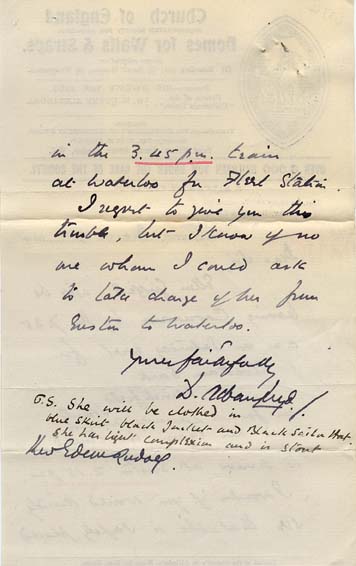 in the 3.45 p.m. train
at Waterloo for Fleet Station.
I regret to give you this
trouble, but I know of no
one whom I could ask
to take charge of her from
Euston to Waterloo.
Yours faithfully
D.
P.S. She will be clothed in
blue skirt black Jacket and Black Sailor Hat.
She has light complexion and is stout
Rev Edem Rudolf.
Church of England
Homes for Waifs & Strays.